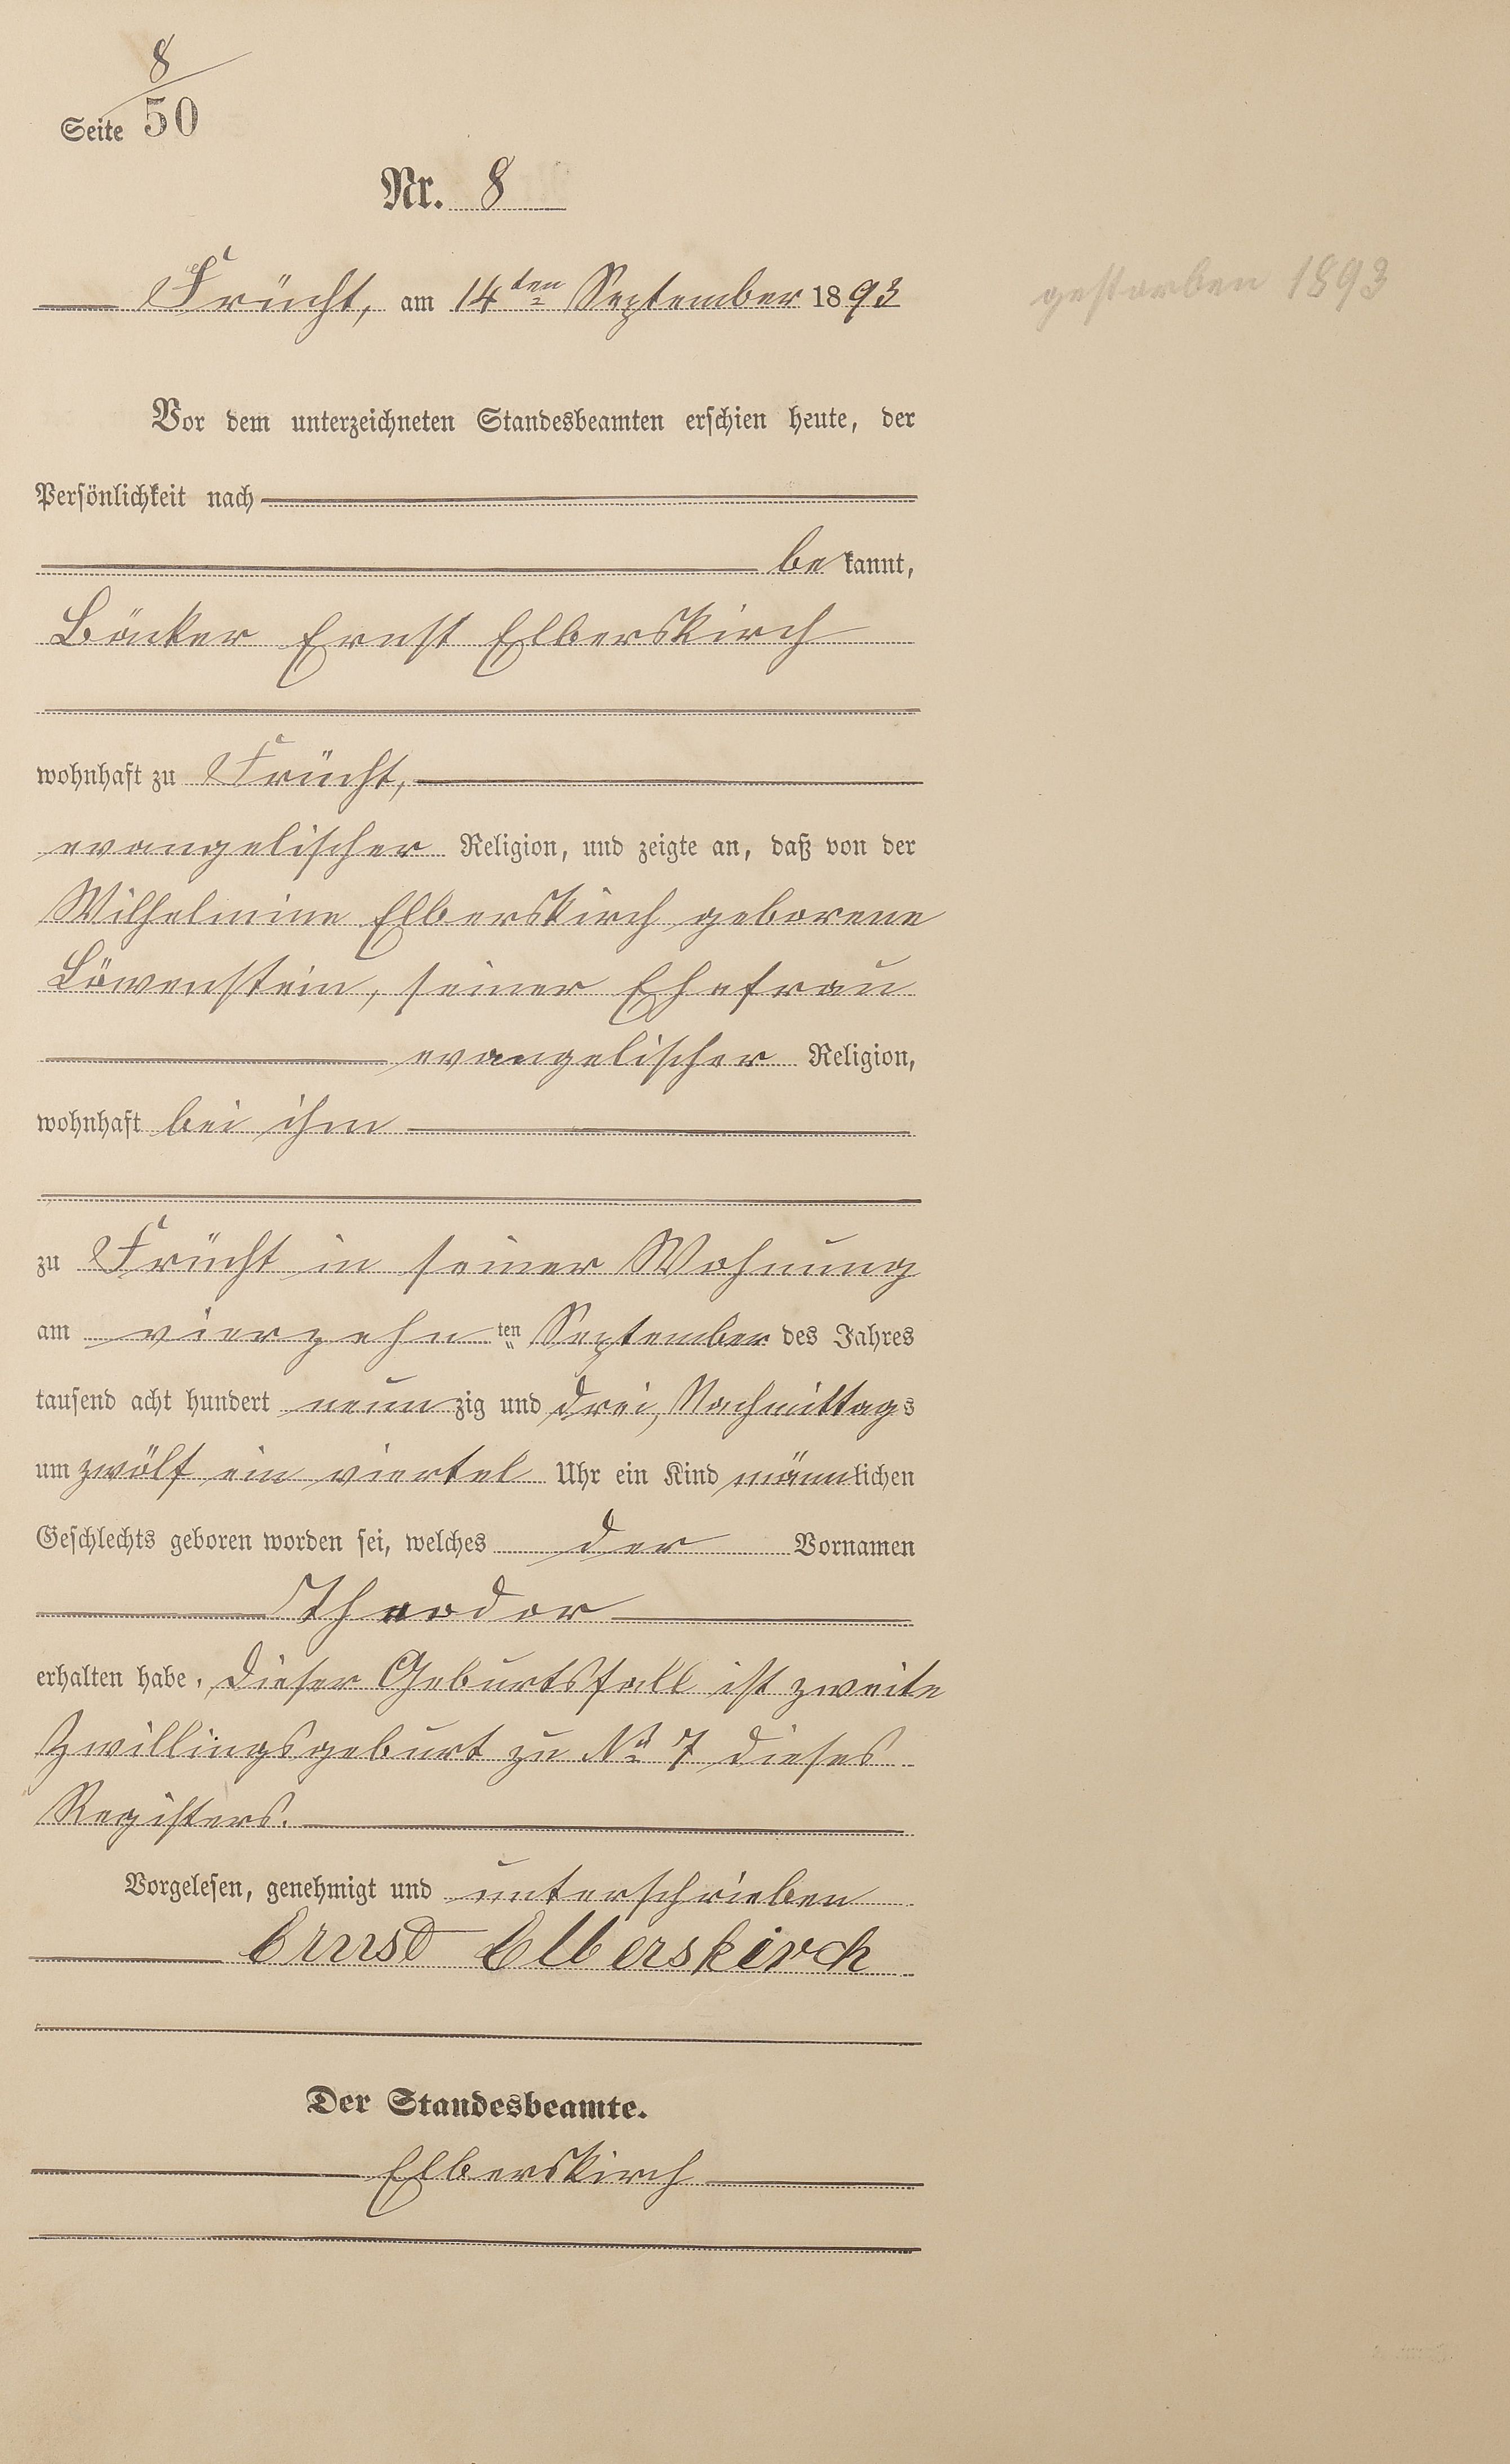 8
Seite 50
Nr. 8
Frücht, am 14ten September 1893
gestorben 1893
Vor dem unterzeichneten Standesbeamten erschien heute, der
Persönlichkeit nach
bekannt,
Bäcker Ernst Elberskirch
wohnhaft zu Frücht,
evangelischer Religion, und zeigte an, daß von der
Wilhelmine Elberskirch geborene
Löwenstein, seiner Ehefrau
evangelischer Religion,
wohnhaft bei ihm
zu Frücht in seiner Wohnung
am vierzehnten September des Jahres
tausend acht hundert neunzig und drei, Nachmittags
um zwölf ein viertel Uhr ein Kind männlichen
Geschlechts geboren worden sei, welches der Vornamen
Theodor
erhalten habe. Dieser Geburtsfall ist zweite
Zwillingsgeburt zu No 7 dieses
Registers.
Vorgelesen, genehmigt und unterschrieben
Ernst Elberskirch
Der Standesbeamte.
Elberskirch